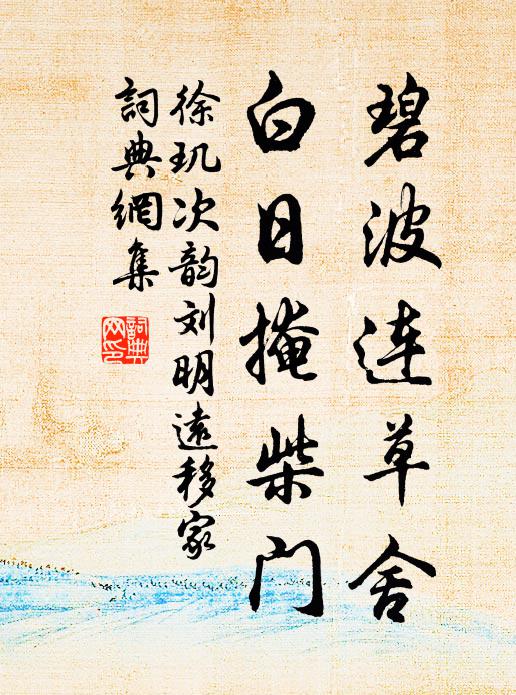 碧波连草舍
白日掩柴门
徐玑次韵刘明遠移家
詞典網集
詞典网印